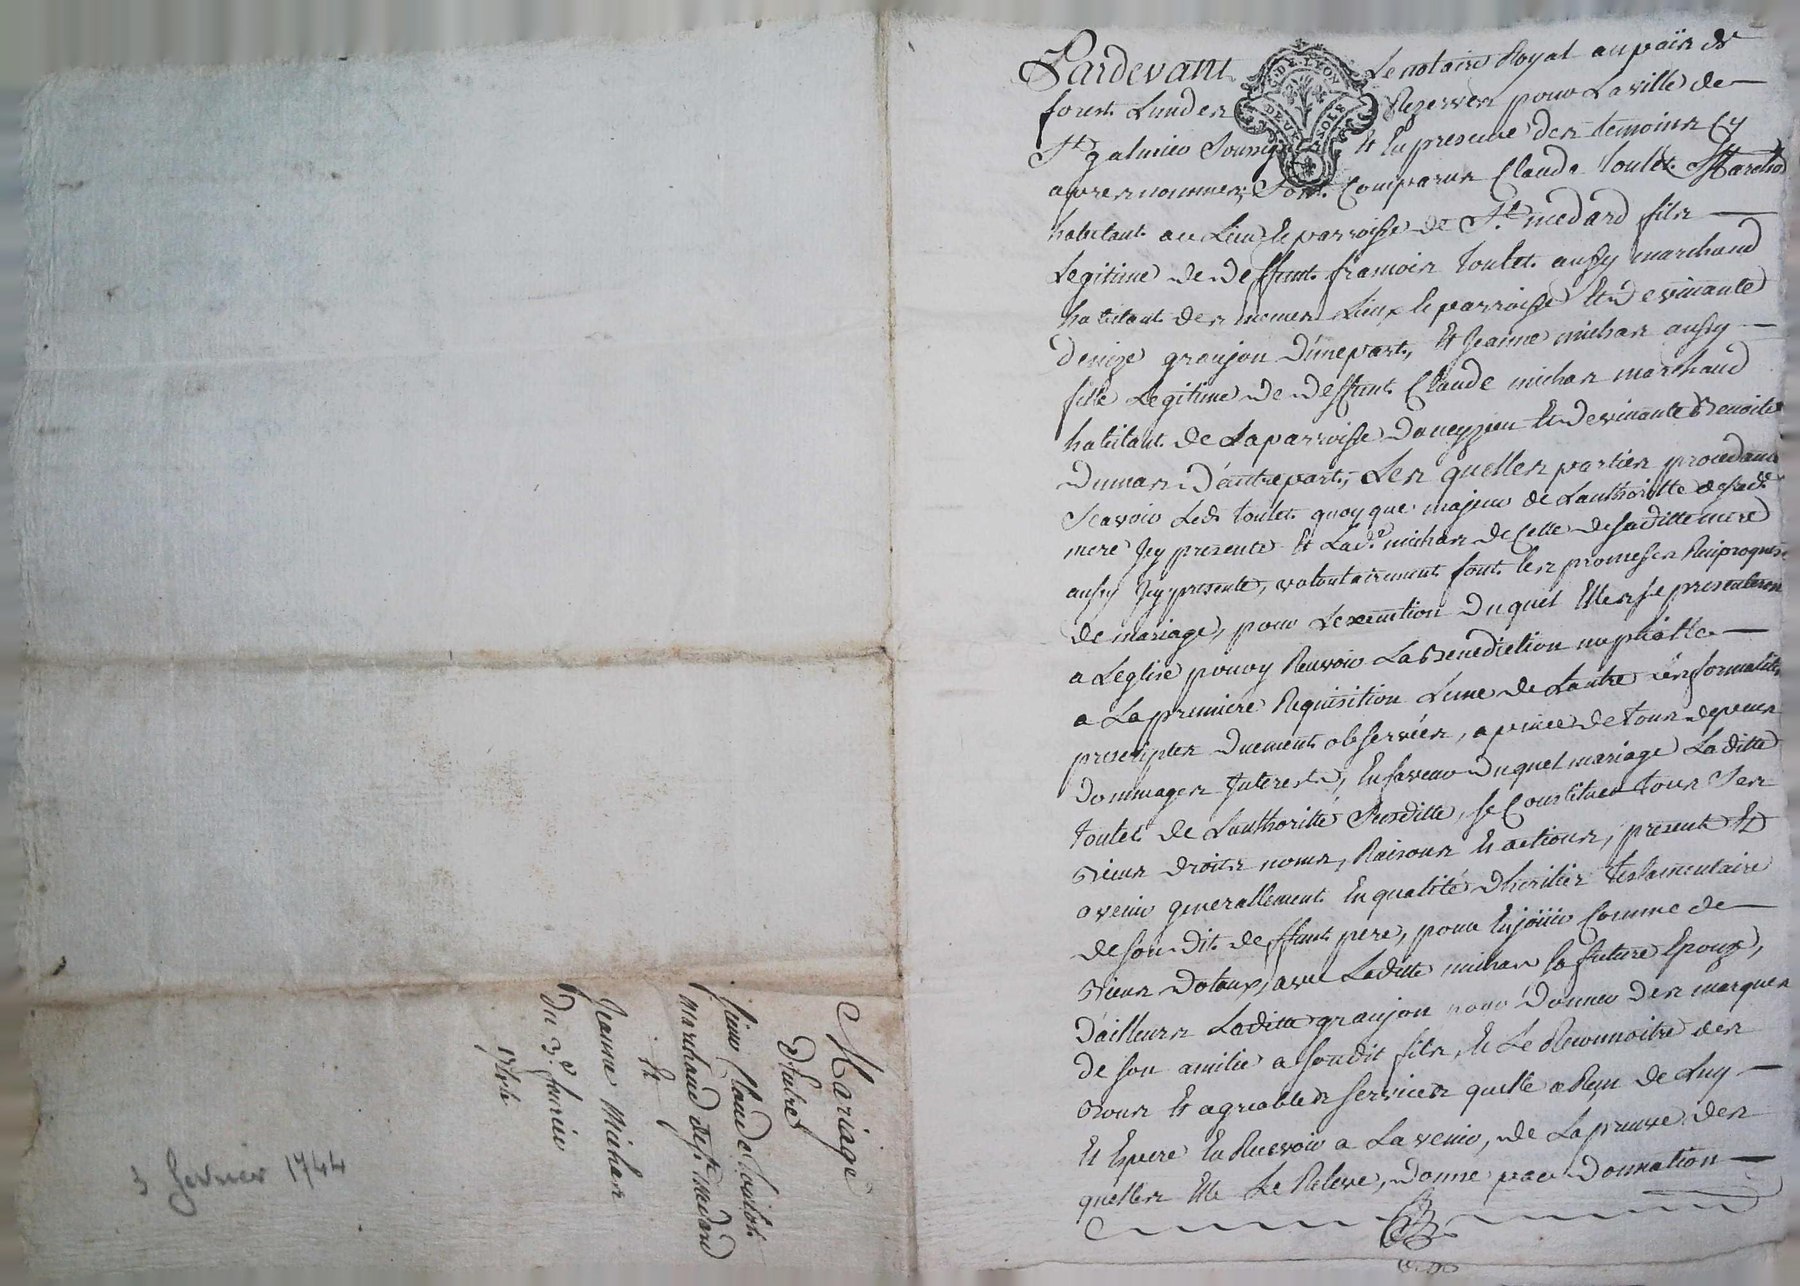 Pardevant Le notaire Royal au païs de
forest Lun des Rezervez pour La ville de
St galmier Soussigné Et En presence des temoins Cy
apres nommez, Sont Comparus Claude toulet Marchand
habitant au Lieu & parroisse de St medard fils
Legitime de deffunt francois toulet aussy marchand
habitant des memes Lieux & parroisse Et de vivante
denize granjon d'une part, Et Jeanne michas aussy
fille Legitime de deffunt Claude michas marchand
habitant de La parroisse d'aveyzieu Et de vivante Benoite
dumas d'autre part, Les quelles parties procedans
Scavoir Ledt toulet quoy que majeur de Lauthoritte de sade
mere Icy presente Et Lade michas de Celle de saditte mere
aussy Icy presente, volontairement font les promesses Reciproques
de mariage, pour Lexecution duquel Elles se presenteront
a Leglise pour y Recevoir La Benediction nuptialle
a La premiere Requisition Lune de Lautre les formalités
prescriptes duement observées, a peine de tous depens
dommages Interests, En faveur duquel mariage Laditte
toulet de Lauthoritté Susditte, se Constitue tous Ses
Biens droits noms, Raisons & actions, presents Et
avenir generallement En qualité d'heritier testamentaire
de son dit deffunt pere, pour En jouir Comme de
Biens dotaux, avec Laditte michas sa future Epouze,
d'ailleurs Laditte granjon pour donner des marques
de son amitié a son dit fils, & Le Reconnoitre des
Bons & agreables services quelle a Reçu de Luy
Et Espere En Recevoir a Lavenir, de La preuve des
quelles Elle Le Releve, donne par donnation
Mariage
d'Entre
sieur Claude toulet
marchand de St Medard
Et
Jeanne Michas
Du 3e fevrier
1744
3 fevrier 1744
G. DE LYON
DEUX SOLS